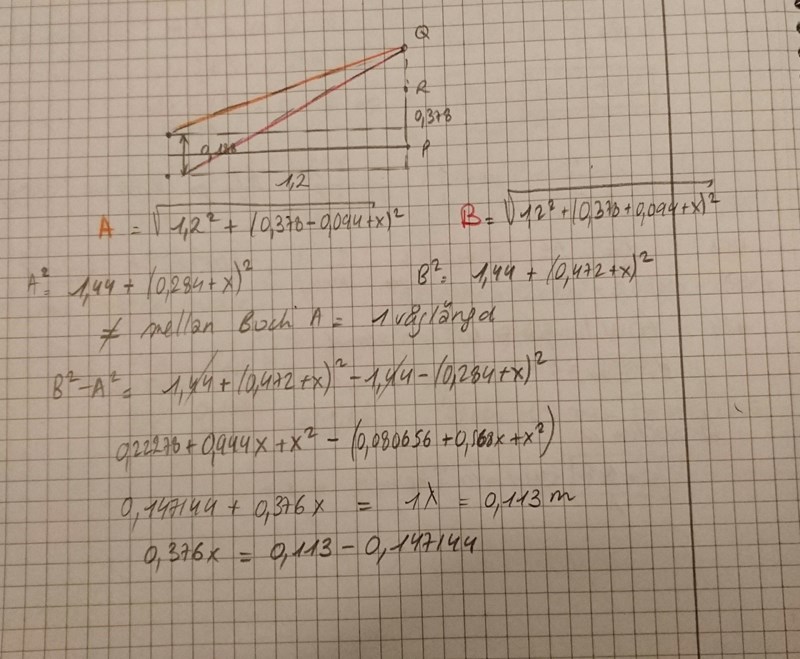 Q
R
0,378
P
1,2
A = √1,2² + (0,378-0,094+x)²
B = √1,2² + (0,378+0,094+x)²
A² = 1,44 + (0,284+x)²
B² = 1,44 + (0,472+x)²
≠ mellan B och A = 1 våglängd
B²-A² = 1,44 + (0,472+x)² - 1,44 - (0,284+x)²
0,22278 + 0,944x + x² - (0,080656 + 0,568x + x²)
0,147144 + 0,376x = 1λ = 0,113 m
0,376x = 0,113 - 0,147144